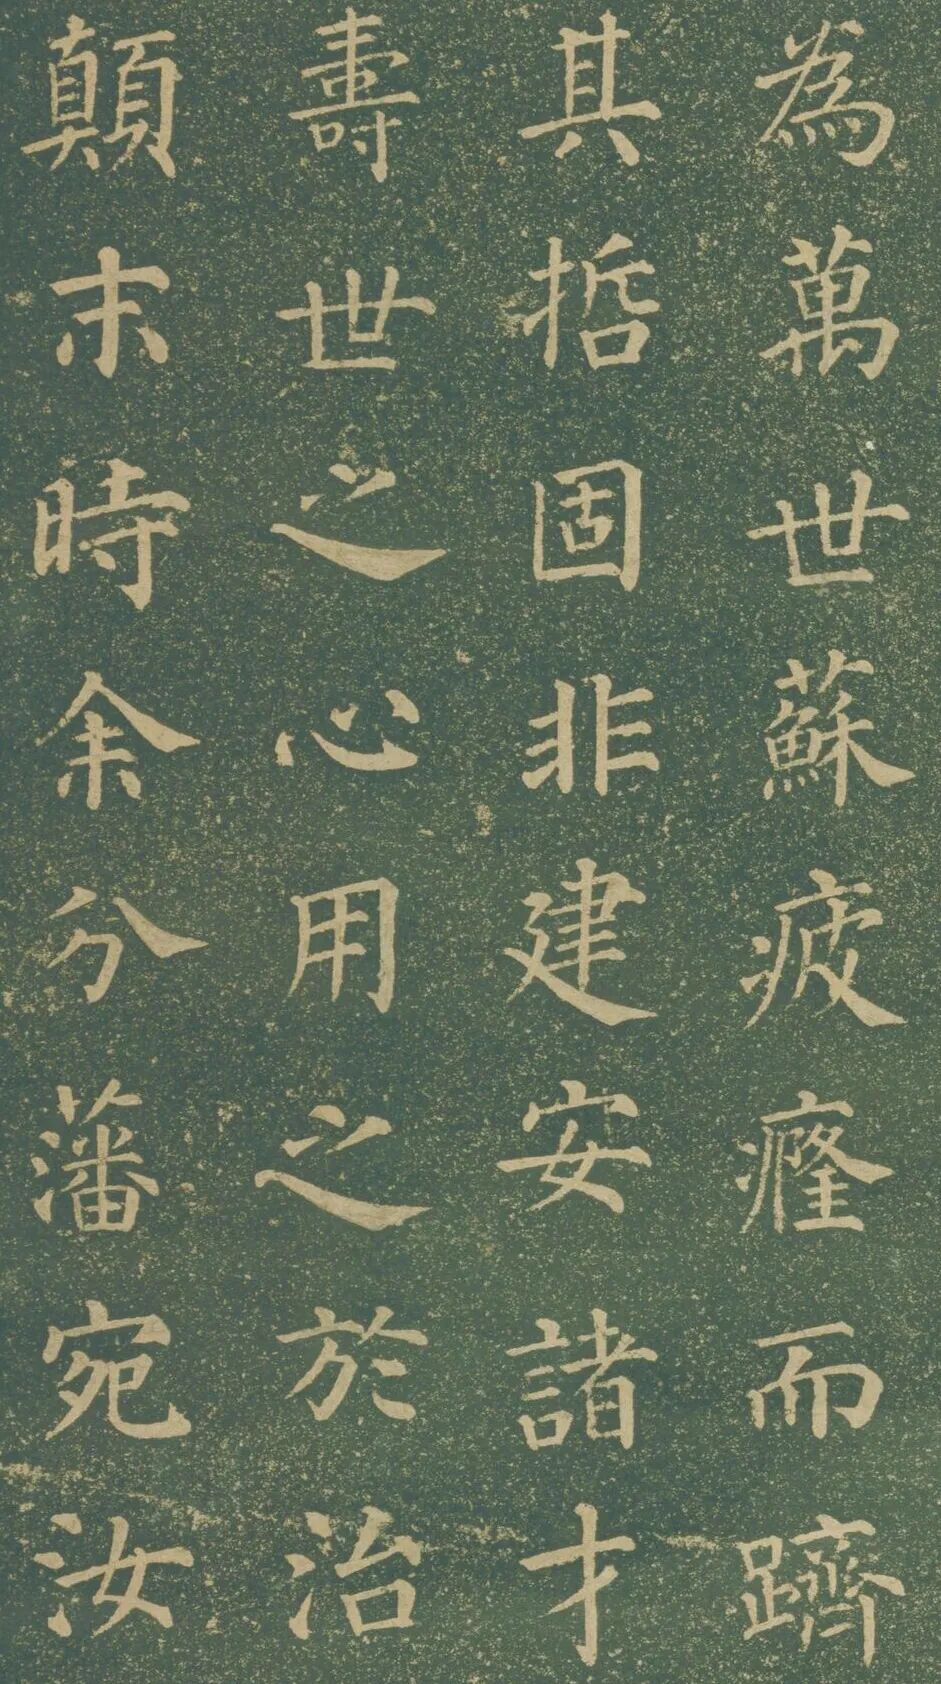 為萬世蘇疲癃而躋
其哲固非建安諸才
壽世之心用之於治
顛末時余分藩宛汝